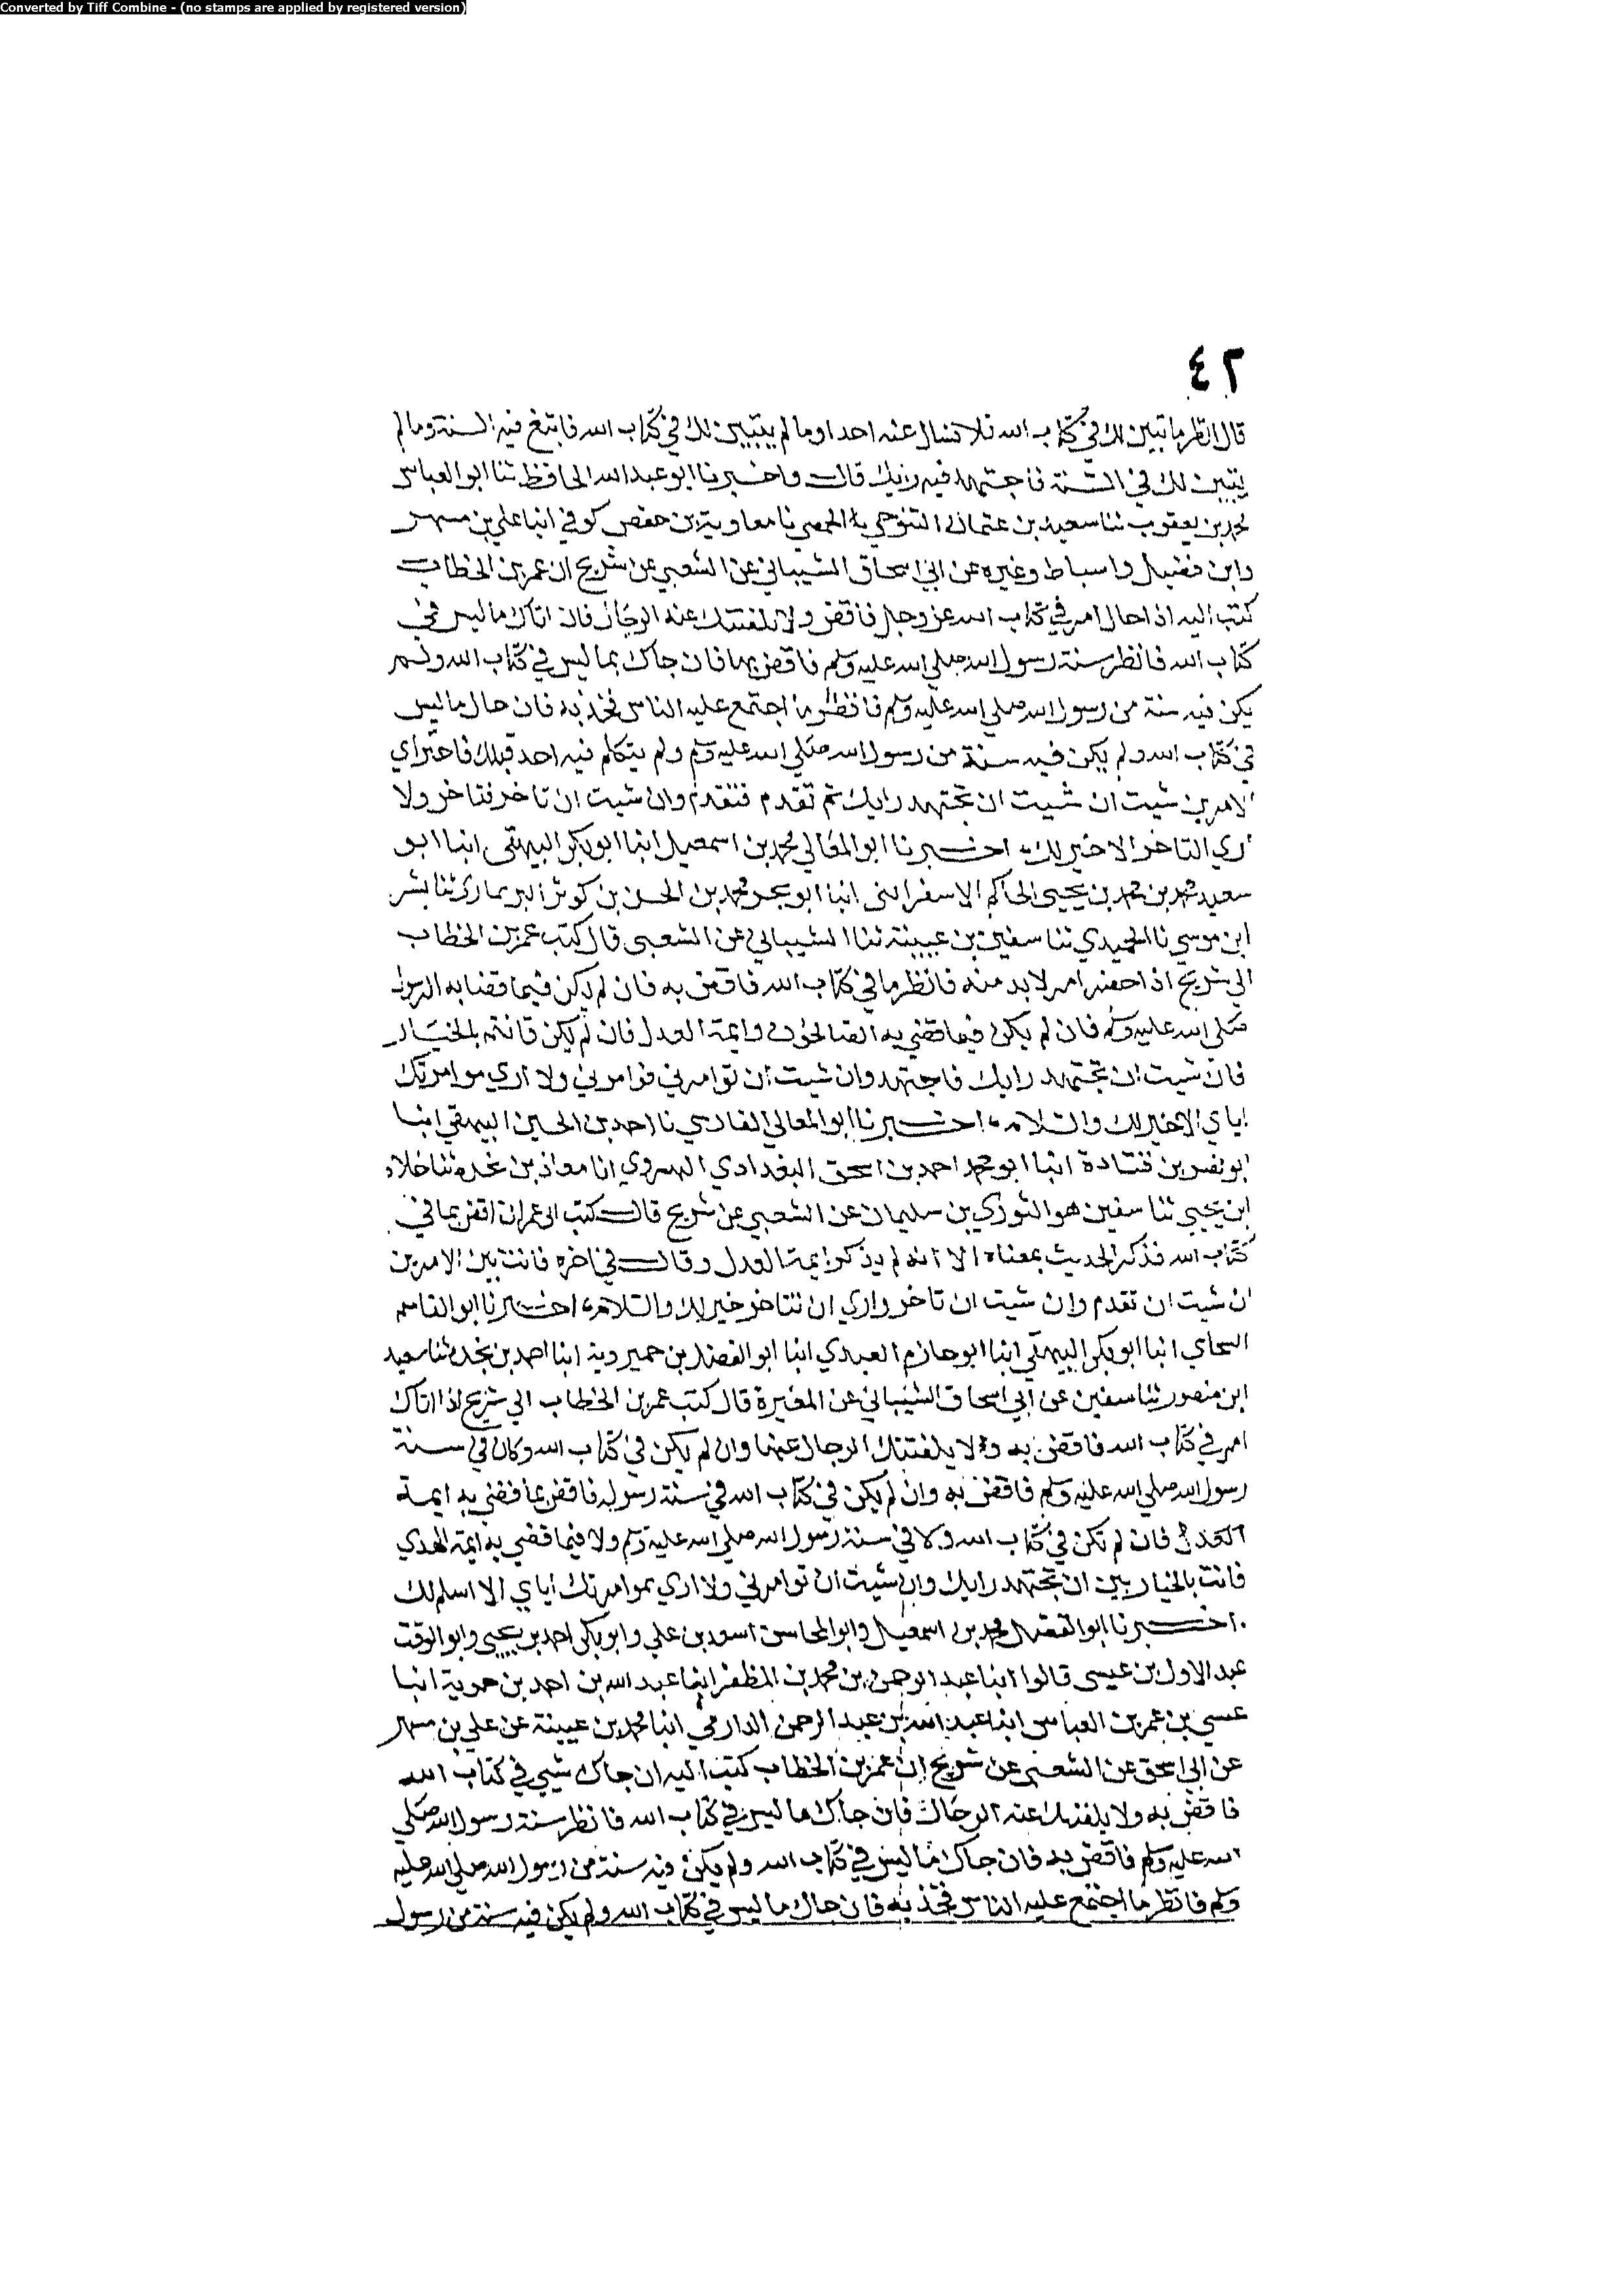 Converted by Tiff Combine - (no stamps are applied by registered version)
٤٢
قال انظر ما تبين لك في كتاب الله فلا تسال عنه احدا وما لم يتبين لك في كتاب الله فابتغ فيه السنة وما لم
يتبين لك في السنة فاجتهد فيه رايك قال واخبرنا ابو عبد الله الحافظ ثنا ابو العباس
محمد بن يعقوب ثنا سعيد بن عثمان التنوخي الحمصي نا معاوية بن حفص كوفي انبا علي بن مسهر
وابن فضيل واسباط وغيره عن ابي اسحاق الشيباني عن الشعبي عن شريح ان عمر بن الخطاب
كتب اليه اذا جال امر في كتاب الله عز وجل فاقض ولا يلفتنك عنه الرجال فان اتاك ما ليس في
كتاب الله فانظر سنة رسول الله صلي الله عليه وسلم فاقض بها فان جاك بما ليس في كتاب الله ولم
يكن فيه سنة من رسول الله صلي الله عليه وسلم فانظر ما اجتمع عليه الناس فخذ به فان جال ما ليس
في كتاب الله ولم يكن فيه سنة من رسول الله صلي الله عليه وسلم ولم يتكلم فيه احد قبلك فاختر اي
الامرين شيت ان شيت ان تجتهد رايك ثم تقدم فتقدم وان شيت ان تاخر فتاخر ولا
اري التاخر الا خير لك اخبرنا ابو المعالي محمد بن اسمعيل انبا ابو بكر البيهقي انبا ابو
سعيد محمد بن محمد بن يحيى الحاكم الاسفرايني انبا ابو بحر محمد بن الحسن بن كوثر البربهاري ثنا بشر
ابن موسي نا الحميدي ثنا سفين بن عيينة ثنا الشيباني عن الشعبي قال كتب عمر بن الخطاب
الي شريح اذا حضر امر لا بد منه فانظر ما في كتاب الله فاقض به فان لم يكن فيما قضا به الرسول
صلى الله عليه وسلم فان لم يكن فيما قضي به الصالحون وايمة العدل فان لم يكن فانت بالخيار
فان شيت ان تجتهد رايك فاجتهد وان شيت ان توامرني فوامرني ولا اري موامرتك
اياي الا خير لك والسلام اخبرنا ابو المعالي الفارسي نا احمد بن الحسين البيهقي انبا
ابو نصر بن قتادة انبا ابو محمد احمد بن اسحق البغدادي الهروي انا معاذ بن نجدة ثنا خلاد
ابن يحيي ثنا سفين هو الثوري بن سليمان عن الشعبي عن شريح قال كتب الى عمر ان اقض بما في
كتاب الله فذكر الحديث بمعناه الا انه لم يذكر ايمة العدل وقال في اخره فانت بين الامرين
ان شيت ان تقدم وان شيت ان تاخر واري ان تتاخر خير لك والسلام اخبرنا ابو القاسم
السحامي انبا ابو بكر البيهقي انبا ابو حازم العبدي انبا ابو الفضل بن حميروية ابنا احمد بن نجدة ثنا سعيد
ابن منصور ثنا سفين عن ابي اسحاق الشيباني عن المغيرة قال كتب عمر بن الخطاب الي شريح اذا اتاك
امر في كتاب الله فاقض به ولا يلفتنك الرجال عنها وان لم يكن في كتاب الله وكان في سنة
رسول الله صلي الله عليه وسلم فاقض به وان لم يكن في كتاب الله في سنة رسوله فاقض بما قضي به ايمة
العدل فان لم تكن في كتاب الله ولا في سنة رسول الله صلي الله عليه وسلم ولا فيما قضي به ايمة الهدي
فانت بالخيار بين ان تجتهد رايك وان شيت ان توامرني ولا اري موامرتك اياي الا اسلم لك
اخبرنا ابو الفضل محمد بن اسمعيل وابو المحاسن اسعد بن علي وابو بكر احمد بن يحيى وابو الوقت
عبد الاول بن عيسى قالوا انبا عبد الرحمن بن محمد بن المظفر انبا عبد الله بن احمد بن حموية انبا
عسي بن عمر بن العباس ابنا عبد الله بن عبد الرحمن الدارمي انبا محمد بن عيينة عن علي بن مسهر
عن ابي اسحق عن الشعبي عن شريح ان عمر بن الخطاب كتب اليه ان جاك شيي في كتاب الله
فاقض به ولا يلفتنك عنه الرجال فان جاك ما ليس في كتاب الله فانظر سنة رسول الله صلي
الله عليه وسلم فاقض به فان جاك ما ليس في كتاب الله ولم يكن فيه سنة من رسول الله صلي الله عليه
وسلم فانظر ما اجتمع عليه الناس فخذ به فان جاك ما ليس في كتاب الله ولم يكن فيه سنة من رسول